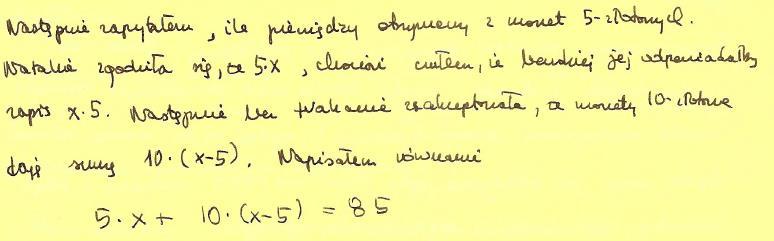 Następnie zapytałem, ile pieniędzy otrzymamy z monet 5-złotowych.
Natalia zgodziła się, że 5·x, chociaż czułem, że bardziej jej odpowiadałby
zapis x·5. Następnie bez wahania zaakceptowała, że monety 10-złotowe
dają sumę 10·(x-5). Napisałem równanie
5·x + 10·(x-5) = 85